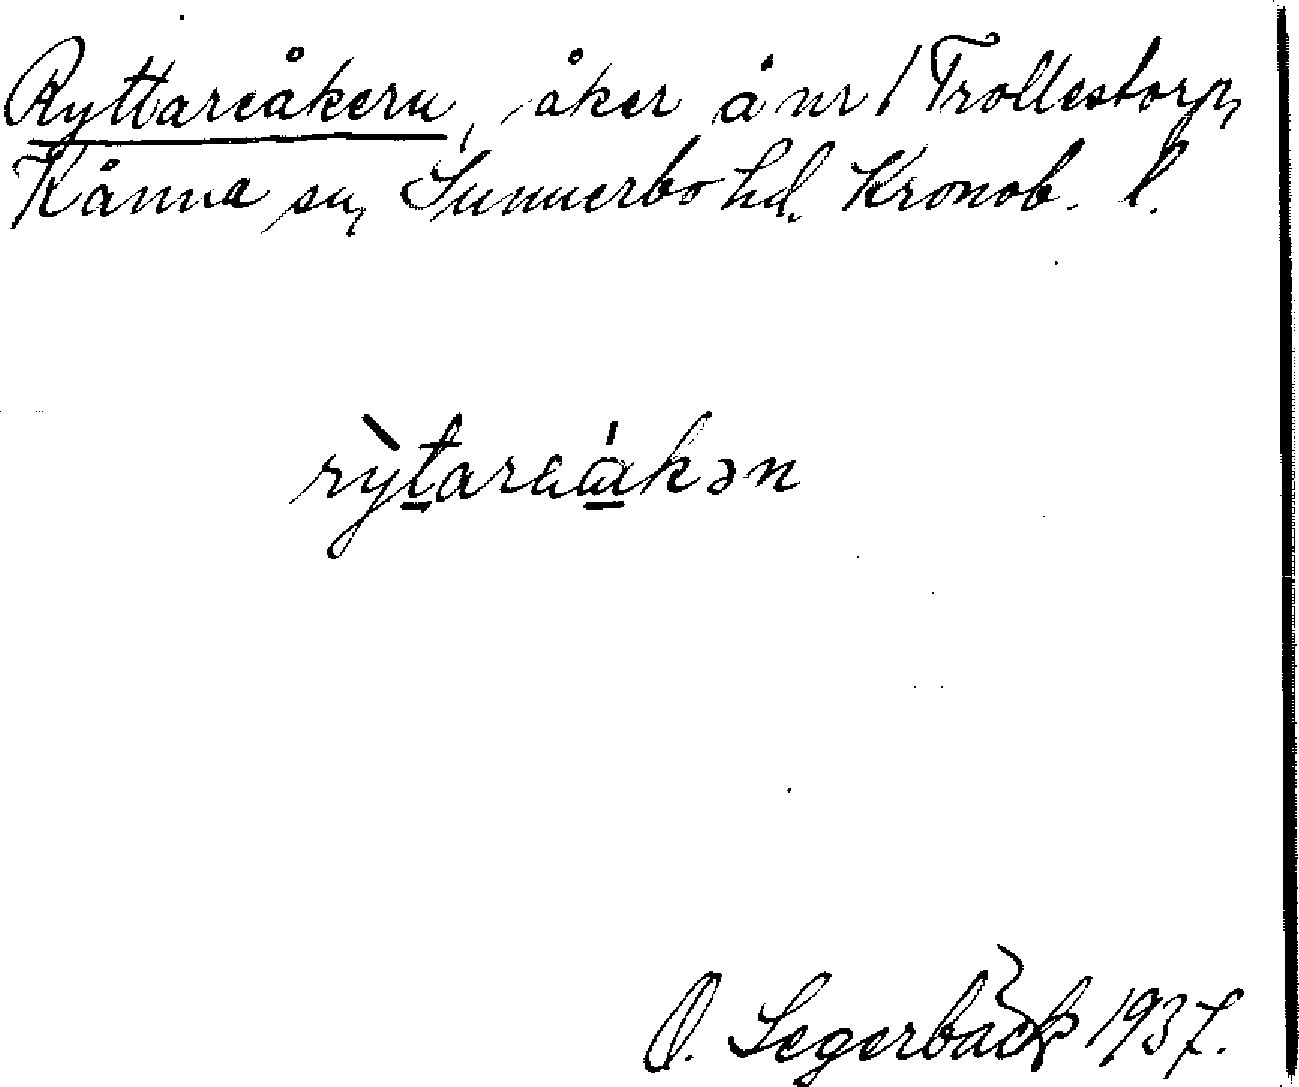 Ryttareåkern, åker å nr 1 Trollestorp,
Kånna sn, Sunnerbo hd. Kronob. l.
rỳtareákən
O. Segerbäck 1937.